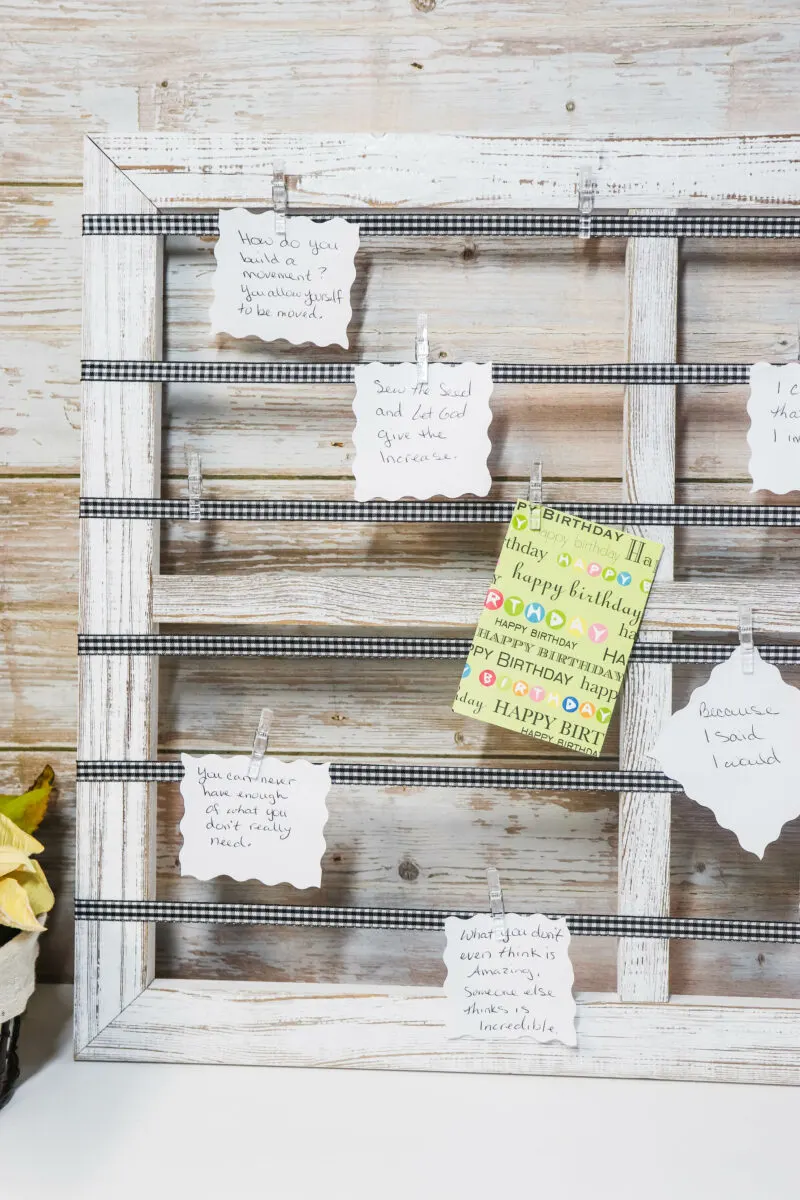 How do you
build a
movement?
You allow yourself
to be moved.
Sew the Seed
and Let God
give the
Increase.
I c
tha
I in
PY BIRTHDAY
Y happy birthday Ha
rthday HAPPY
happy birthday
RTHDAY ha
HAPPY BIRTHDAY Ha
HAPPY BIRTHDAY
PPY BIRTHDAY happ
BIRTHDAY
day HAPPY BIRT
HAPPY BIRTHDA
Because
I said
I would
You can never
have enough
of what you
don't really
need.
What you don't
even think is
Amazing,
Someone else
thinks is
Incredible.